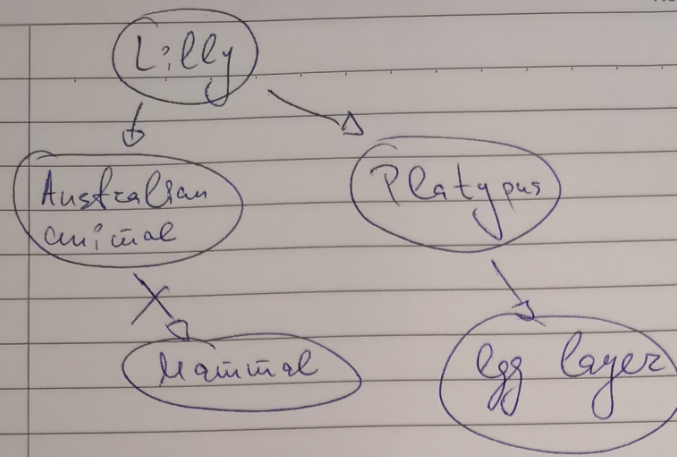 Lilly
Australian
animal
Platypus
Mammal
Egg layer